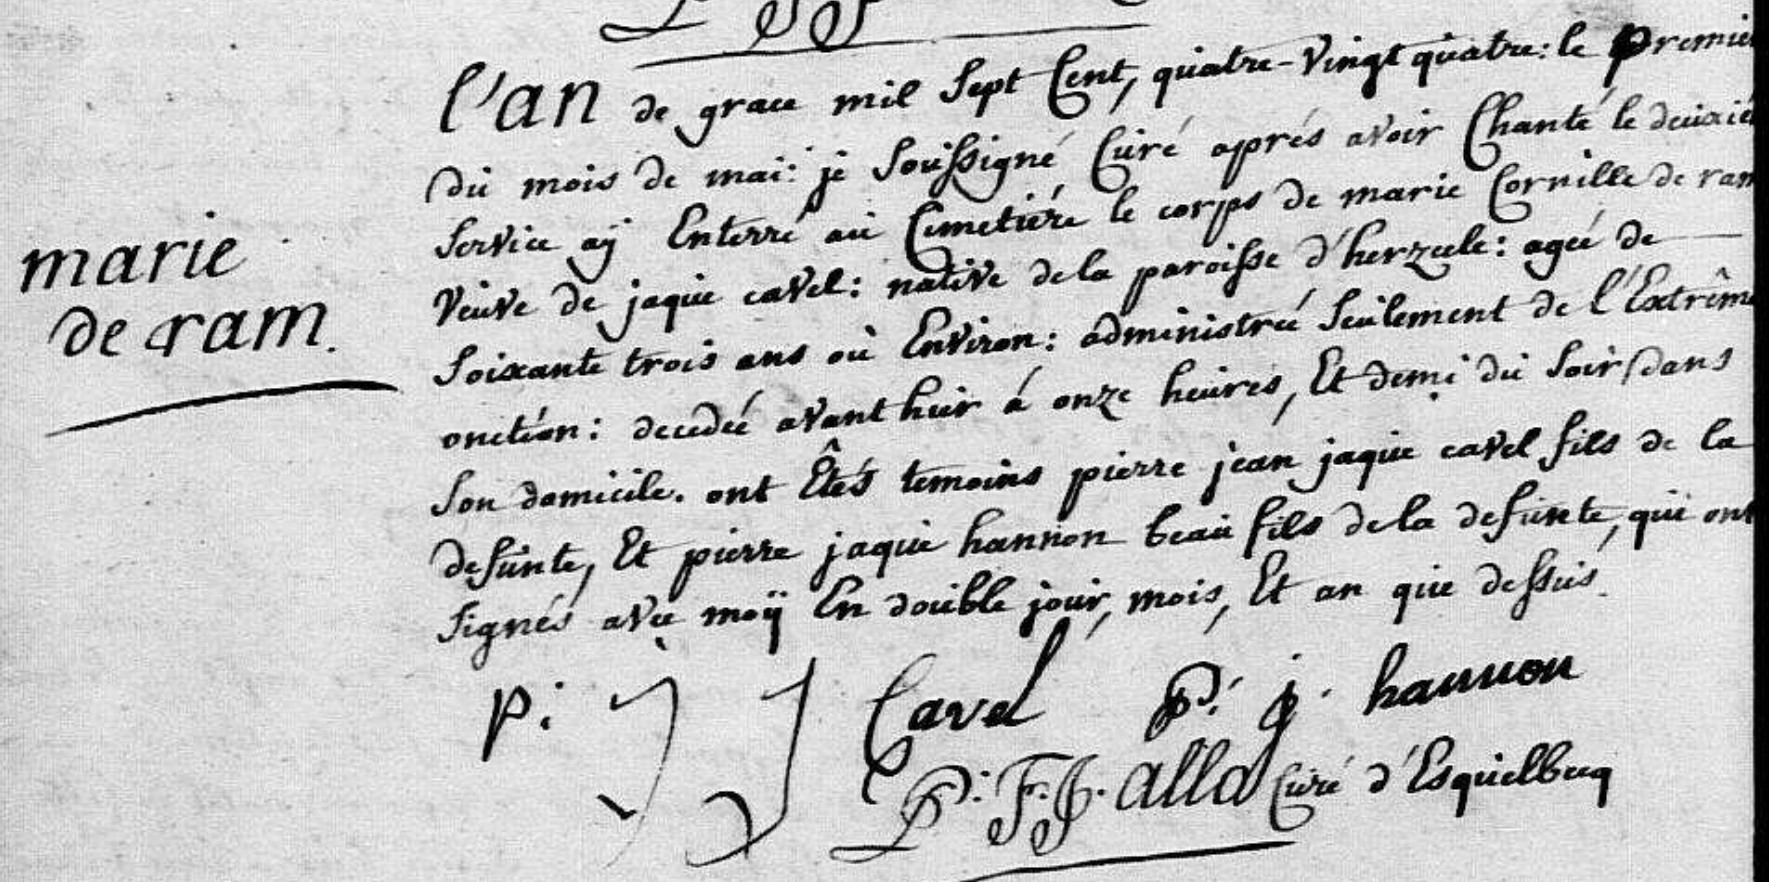 l'an de grace mil Sept Cent, quatre-Vingt quatre: le premie
du mois de mai: je Soussigné Curé aprés avoir Chanté le deuxié
Service aÿ Enterré au Cimetiére le corps de marie Cornille de ram
marie
Veuve de jaque cavel: native de la paroisse d'herzeele: ageé de
de ram.
Soixante trois ans ou Environ: administreé Seulement de l'Extrême
onction: decedeé avant huir á onze heures, Et demi du Soir dans
Son domicile. ont Êtés temoins pierre jean jaque cavel fils de la
defunte, Et pierre jaque hannon beau fils de la defunte, qui ont
Signés avec moÿ En double jour, mois, Et an que dessus.
p: j j Cavel P: j. hannon
P: F: J. alla Curé d'Esquelbecq